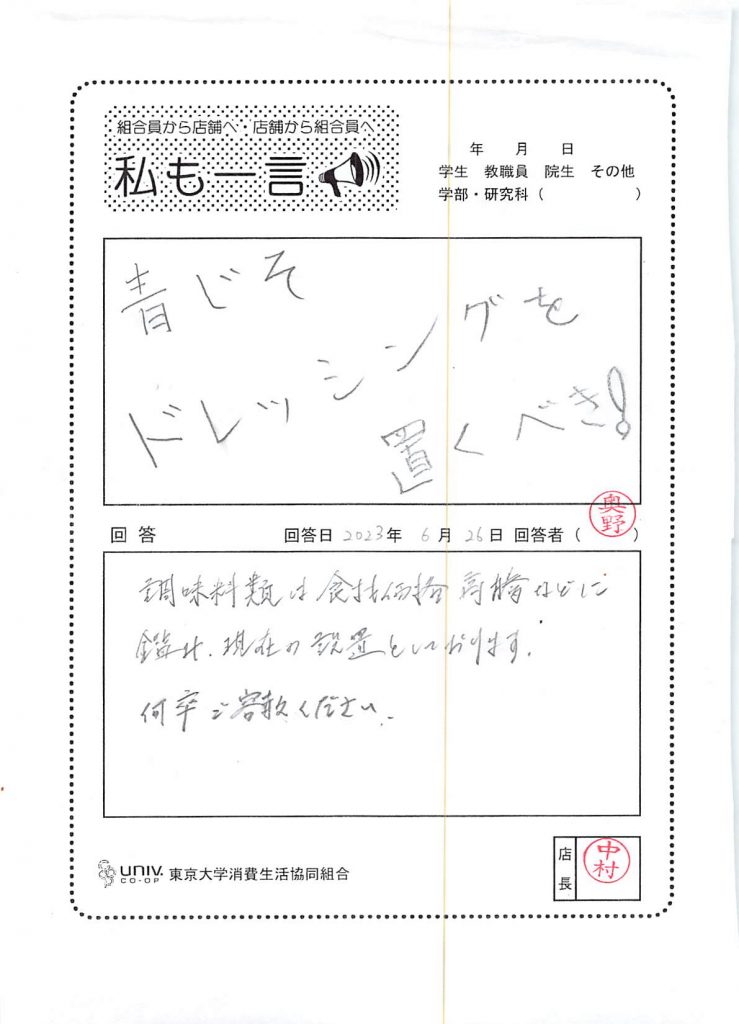 組合員から店舗へ・店舗から組合員へ
私も一言
年 月 日
学生 教職員 院生 その他
学部・研究科( )
青じそ
ドレッシングを
置くべき!
回答 回答日 2023年 6月 26日 回答者( 奥野 )
調味料類は食材価格高騰などに
鑑み、現在の設置としております。
何卒ご容赦ください。
UNIV. CO-OP 東京大学消費生活協同組合
店長 中村